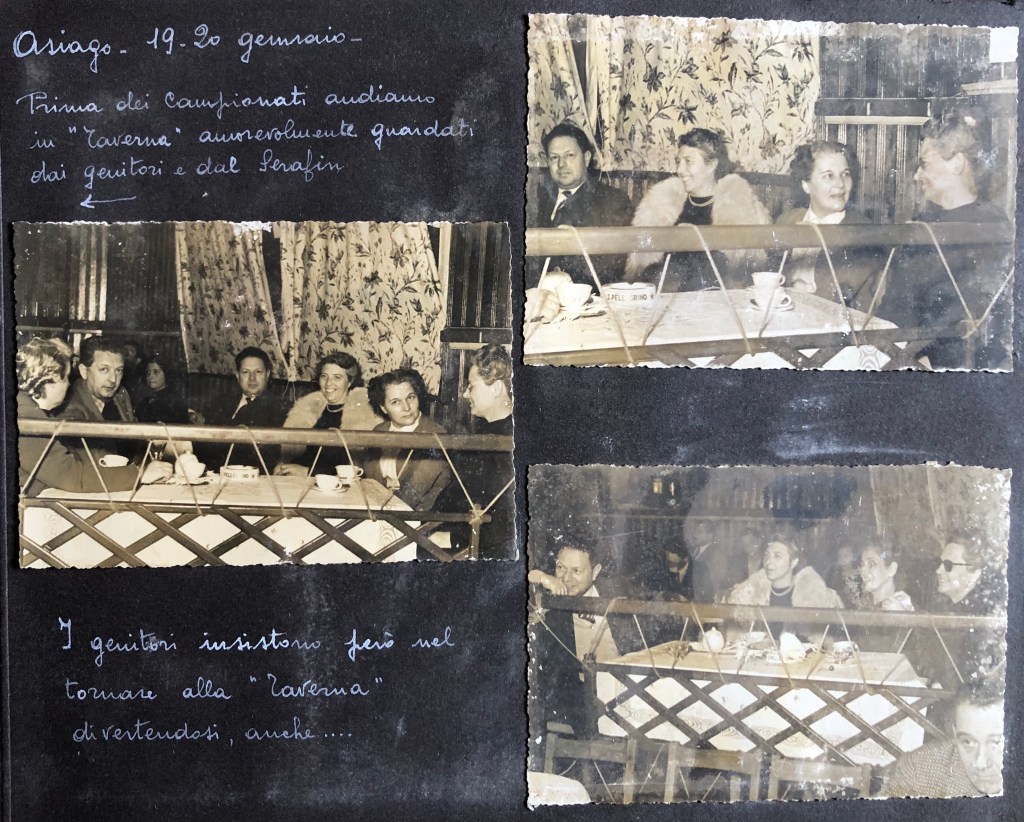 Asiago - 19-20 gennaio -
Prima dei Campionati andiamo
in "Taverna" amorevolmente guardati
dai genitori e dal Serafin
←
S.PELLEGRINO
PELLEGRINO
I genitori insistono però nel
tornare alla "Taverna"
divertendosi, anche....